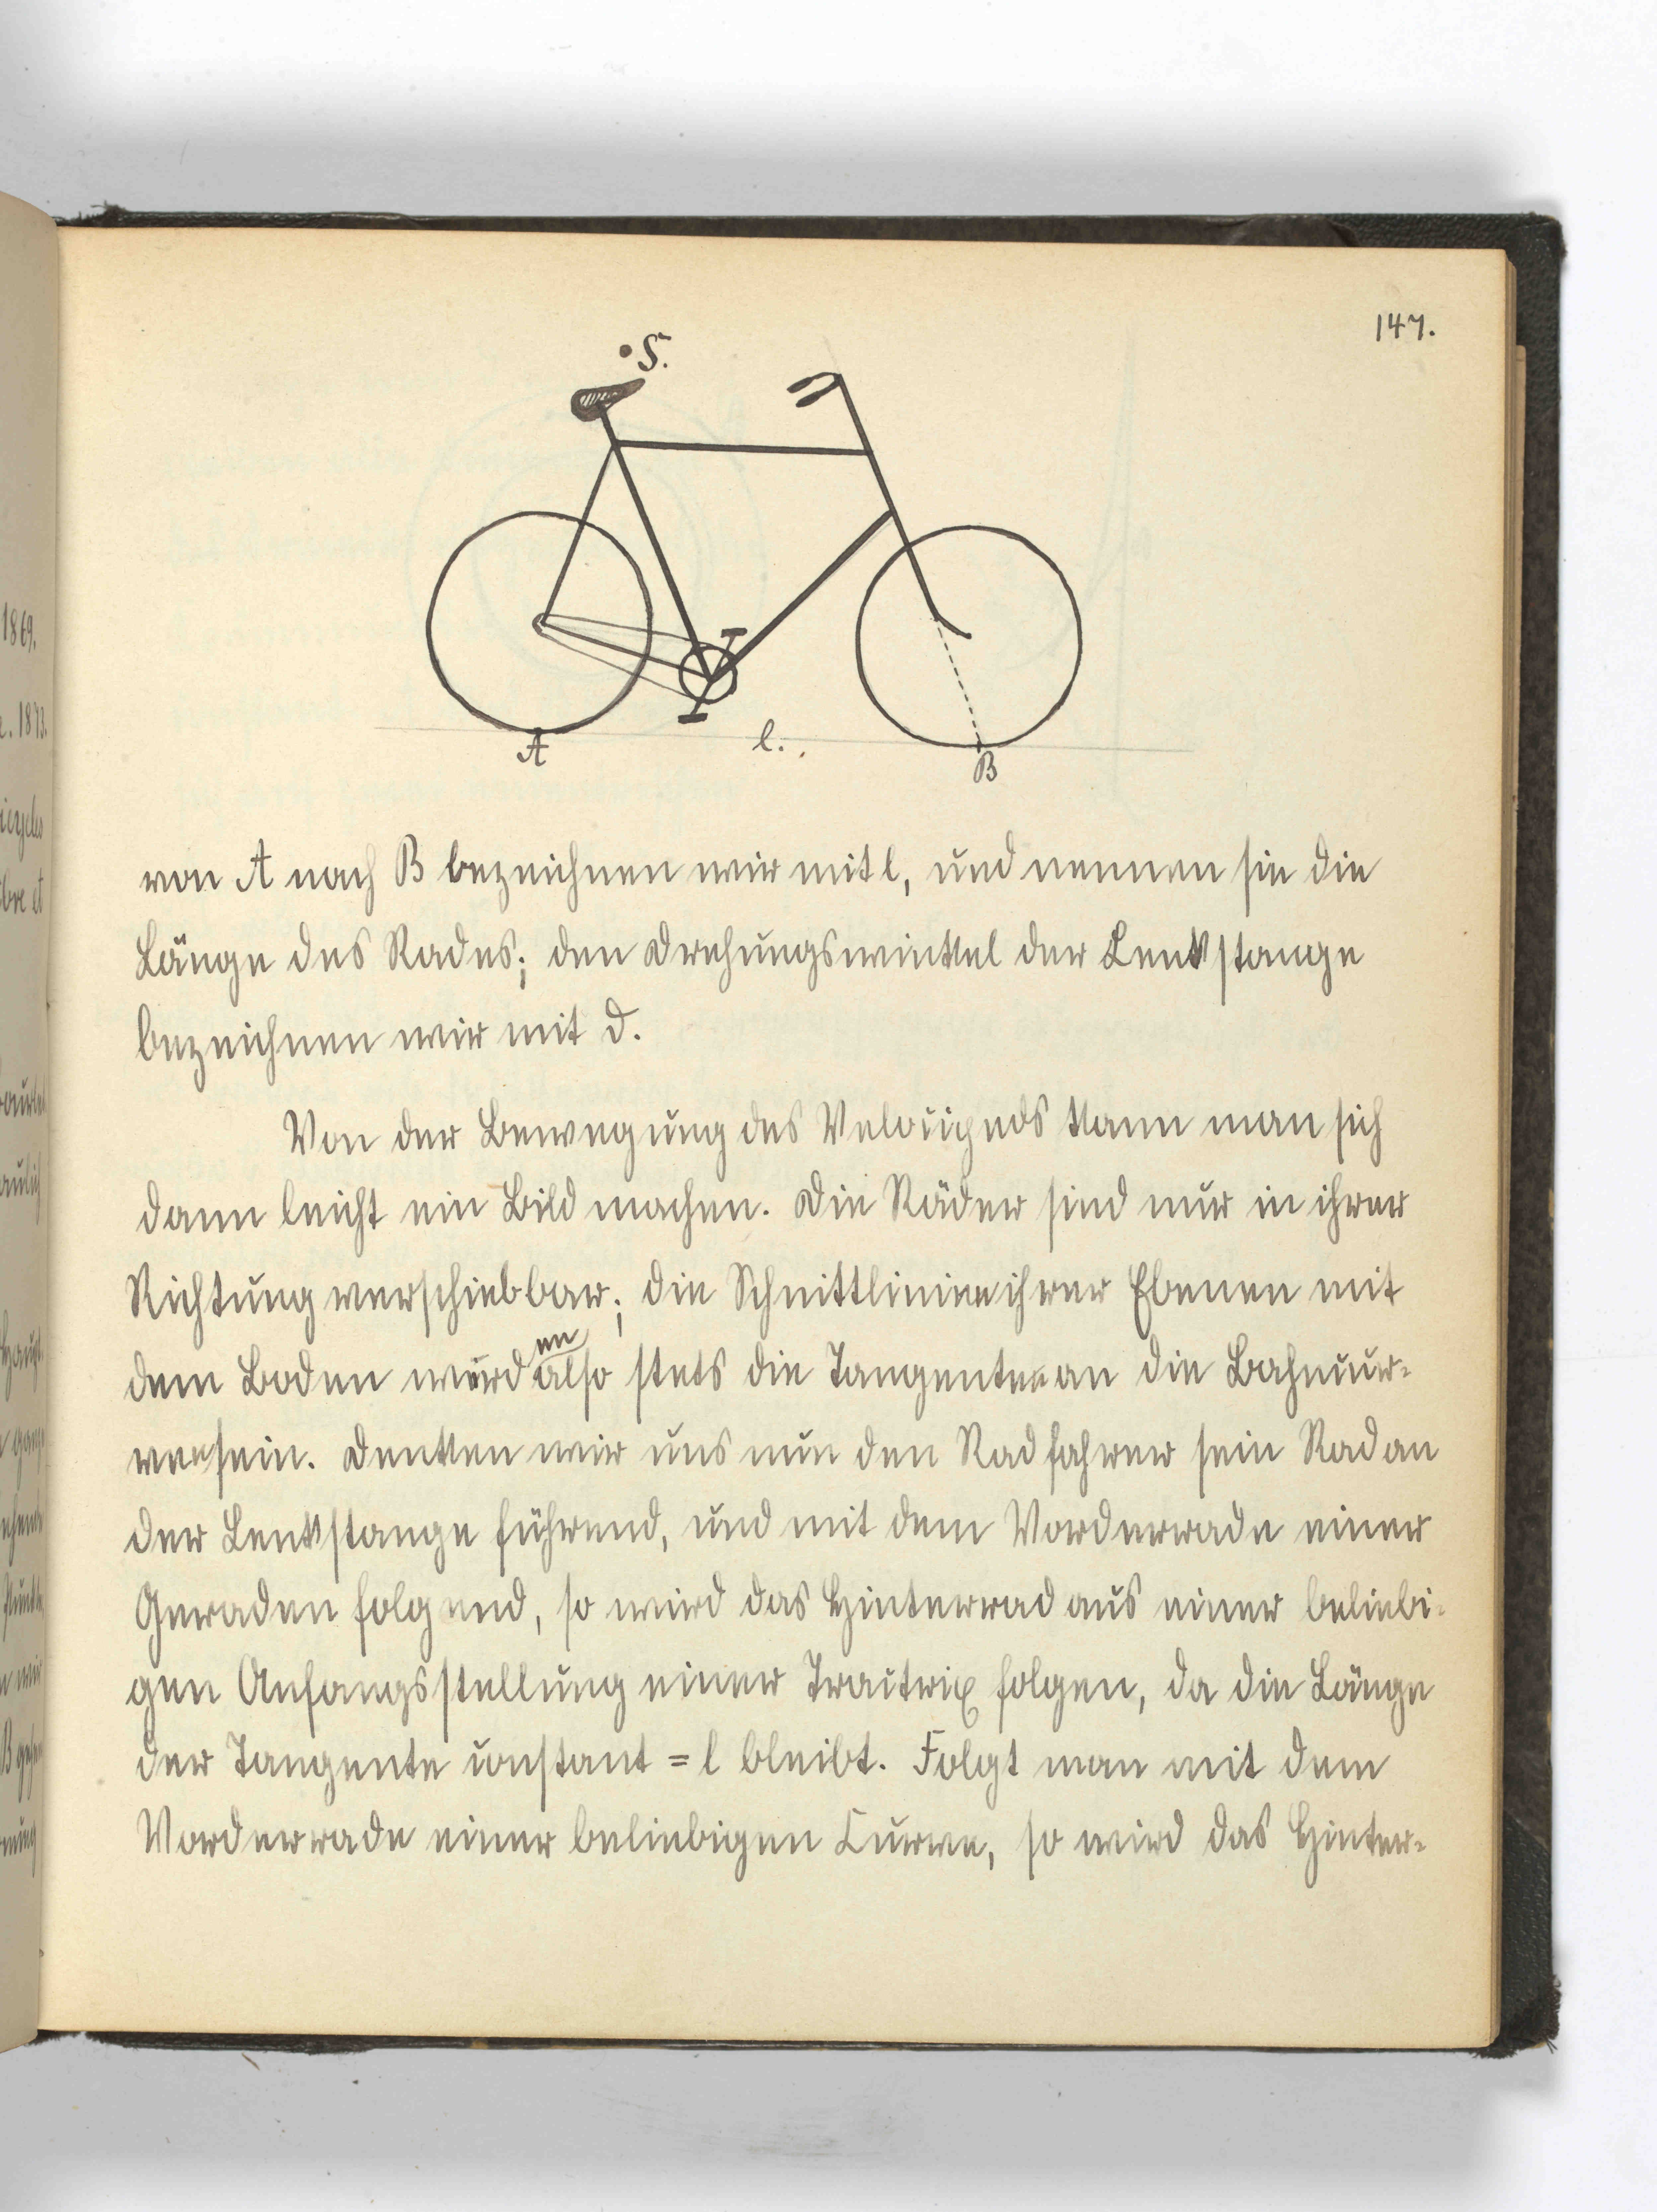 147.
S.
A
l.
B
von A nach B bezeichnen wir mit l, und nennen sie die
Länge des Rades; den Drehungswinkel der Lenkstange
bezeichnen wir mit d.
Von der Bewegung des Velocipeds kann man sich
dann leicht ein Bild machen. Die Räder sind nur in ihrer
Richtung verschiebbar; die Schnittlinien ihrer Ebenen mit
en
dem Boden würd also stets die Tangenten an die Bahncur-
ven sein. Denken wir uns nun den Radfahrer sein Rad an
der Lenkstange führend, und mit dem Vorderrade einer
Geraden folgend, so wird das Hinterrad aus einer beliebi-
gen Anfangsstellung einer Tractrix folgen, da die Länge
der Tangente constant = l bleibt. Folgt man mit dem
Vorderrade einer beliebigen Curve, so wird das Hinter-
1869.
1873.